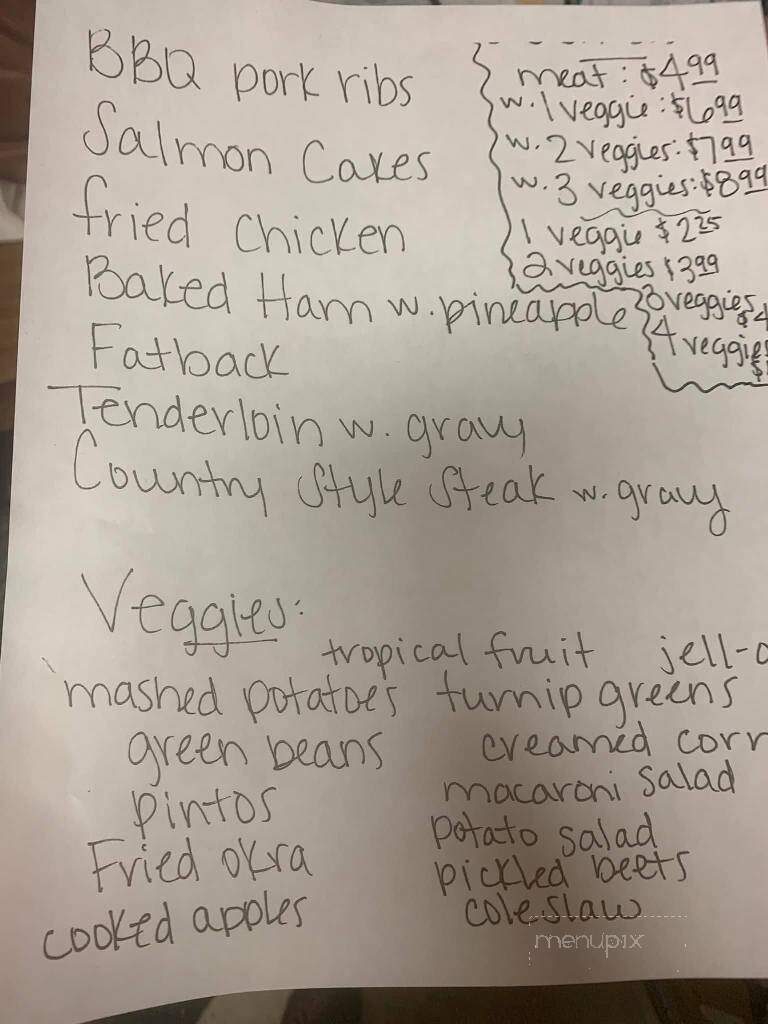 BBQ pork ribs
Salmon Cakes
fried chicken
Baked Ham w. pineapple
Fatback
Tenderloin w. gravy
Country Style Steak w. gravy
meat: $4.99
w. 1 veggie: $6.99
w. 2 veggies: $7.99
w. 3 veggies: $8.99
1 veggie $2.25
2 veggies $3.99
3 veggies
4 veggies
Veggies:
tropical fruit jell-o
mashed potatoes turnip greens
green beans creamed corn
pintos macaroni salad
Fried okra potato salad
pickled beets
cooked apples coleslaw
menupix